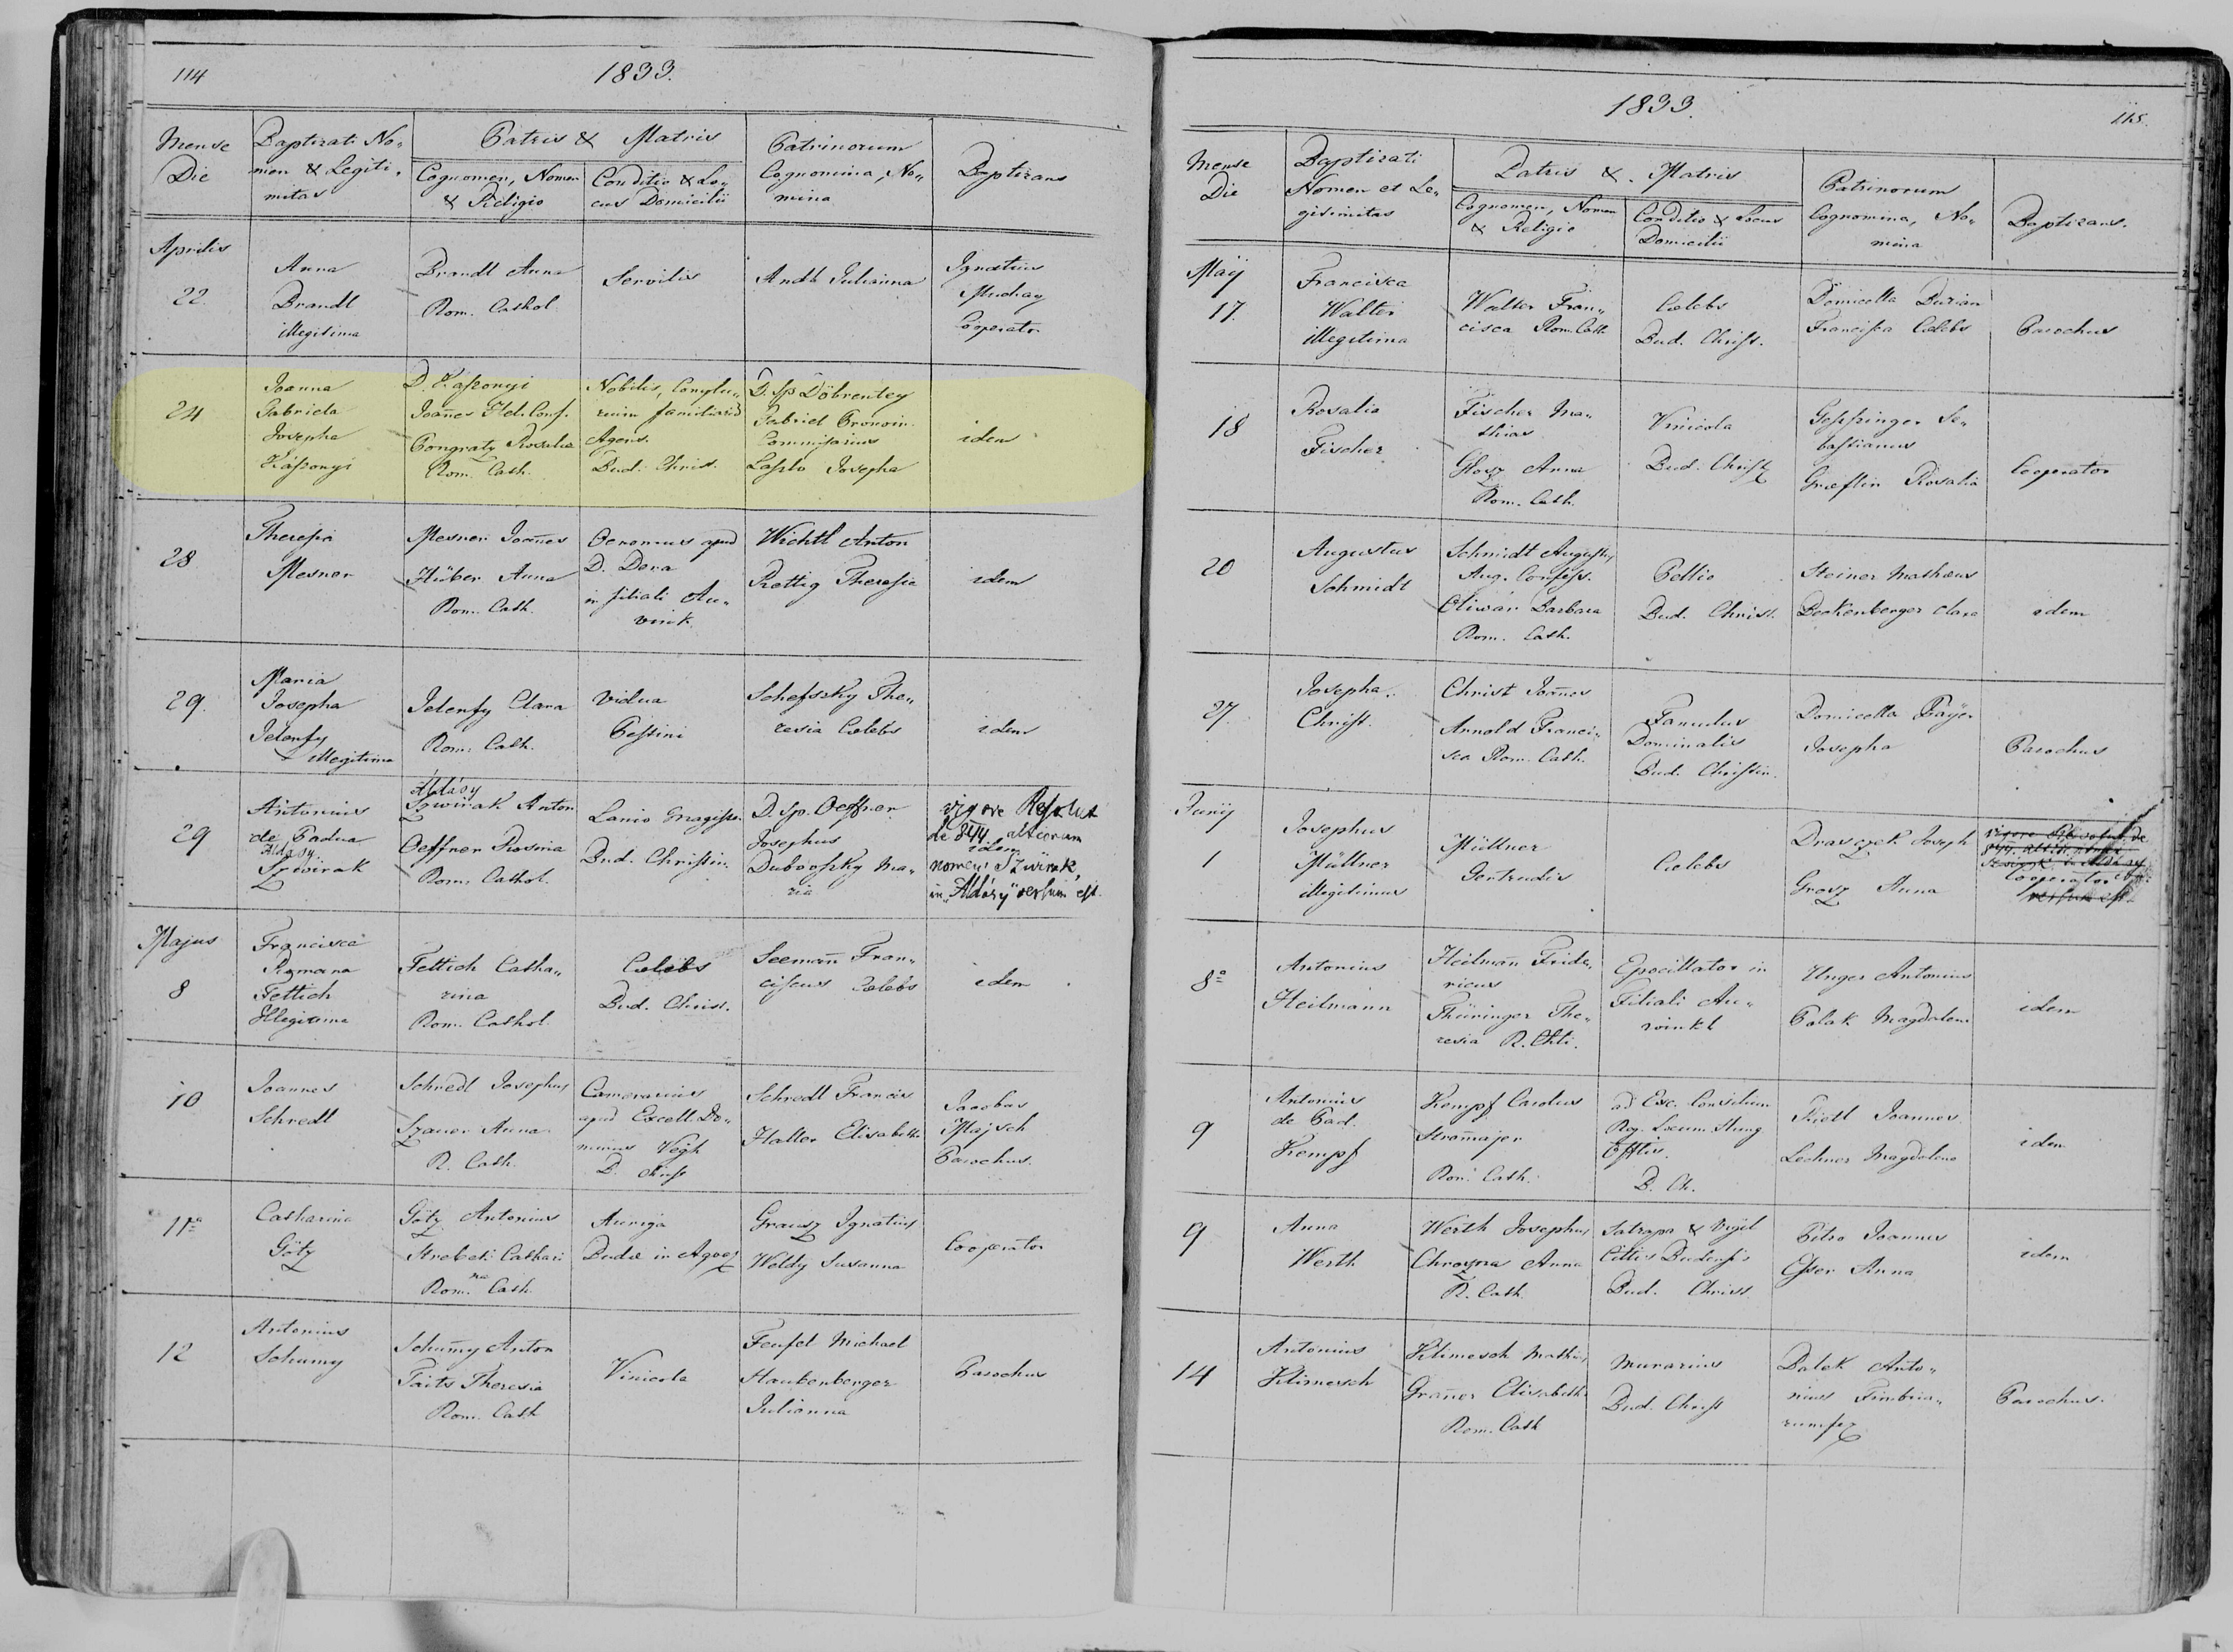 114
1833.
Mense Die
Baptizati Nomen & Legitimitas
Patris & Matris
Cognomen, Nomen & Religio
Conditio & Locus Domicilii
Patrinorum Cognomina, Nomina
Baptizans
Aprilis
22
Anna
Brandl
illegitima
Brandl Anna
Rom. Cathol.
Servilis
Andl Julianna
Ignatius
Cooperator
24
Joanna
Gabriela
Josepha
Káßonyi
D. Káßonyi
Joañes Hel. Conf.
Pongratz Rosalia
Rom. Cath.
Nobilis, Complu„
rium familiarum
Agens.
Bud. Christ.
D. Sp Döbrentey
Gabriel Provin.
Commißarius
Laßlo Josepha
idem
28
Theresia
Mesner
Mesner Joañes
Hüber Anna
Rom. Cath.
Oeconomus apud
D. Dera
in filiali Au„
wink.
Wichtl Anton
Rettig Theresia
idem
29.
Maria
Josepha
Jelenfy
illegitima
Jelenfy Clara
Rom. Cath.
Vidua
Pestini
Schefszky The„
resia Caelebs
idem
29
Antonius
de Padua
Aldásy
Szwirak
Aldásy
Szwirak Anton
Oeffner Rosina
Rom. Cathol.
Lanio Magister
Bud. Christin.
D. Sp. Oeffner
Josephus
Dubovszky Ma„
ria
vigore Resolut
de 844 altiorum
idem
nomen Szwirak
in „Aldásy" versum est.
Majus
8
Francisca
Romana
Fettich
Illegitima
Fettich Catha„
rina
Rom. Cathol.
Caelebs
Bud. Christ.
Seemañ Fran„
ciscus Caelebs
idem
10
Joannes
Schredl
Schredl Josephus
Szauer Anna
R. Cath.
Camerarius
apud Excell. Do„
minum Végh
B. Christ
Schredl Francis
Haller Elisabetha
Jacobus
Majsch
Parochus.
11a
Catharina
Götz
Götz Antonius
Strebeli Cathari
na
Rom. Cath.
Auriga
Budae in Aqua
Grausz Ignatius
Weldy Susanna
Cooperator
12
Antonius
Schumy
Schumy Anton
Taits Theresia
Rom. Cath
Vinicola
Teufel Michael
Haukenberger
Julianna
Parochus
1833.
115.
Mense Die
Baptizati
Nomen et Le„
gitimitas
Patris &. Matris
Cognomen, Nomen
& Religio
Conditio & Locus
Domicilii
Patrinorum
Cognomina, No„
mina
Baptizans.
Maÿ
17.
Francisca
Walter
illegitima
Walter Fran„
cisca Rom. Cath
Caelebs
Bud. Christ.
Domicella Durian
Francisca Caelebs
Parochus
18
Rosalia
Fischer
Fischer Ma„
thias
Glosz Anna
Rom. Cath.
Vinicola
Bud. Christ
Geßsinger Se„
bastianus
Graeflin Rosalia
Cooperator
20
Augustus
Schmidt
Schmidt Augustus
Aug. Confess.
Oliwár Barbara
Rom. Cath.
Pellio
Bud. Christ.
Steiner Mathaeus
Beckenberger Clara
idem
27
Josepha
Christ.
Christ Joañes
Arnold Franci„
sca Rom. Cath.
Famulus
Dominalis
Bud. Christin.
Domicella Payer
Josepha
Parochus
Junÿ
1
Josephus
Müllner
illegitimus
Müllner
Gertrudis
Caelebs
Drasczek Joseph
Grosz Anna
Cooperator
8a
Antonius
Heilmann
Heilmañ Fride„
ricus
Thüringer The„
resia R. Chti.
Epocillator in
Filiali Au„
winkl
Unger Antonius
Polak Magdalena
idem
9
Antonius
de Pad.
Kempf
Kempf Carolus
Stromajer
Rom. Cath.
ad Exc. Consilium
Reg. Locum.
B. Ch.
Riedl Joannes
Lechner Magdalena
idem
9
Anna
Werth
Werth Josephus
Chrozna Anna
R. Cath.
Satrapa & Vigil
Cittis Budensis
Bud. Christ
Pilro Joannes
Eßer Anna
idem
14
Antonius
Klimesch
Klimesch Mathias
Grañer Elisabetha
Rom. Cath
Murarius
Bud. Christ
Dalek Anto„
nius Fimbria„
rumfex
Parochus.